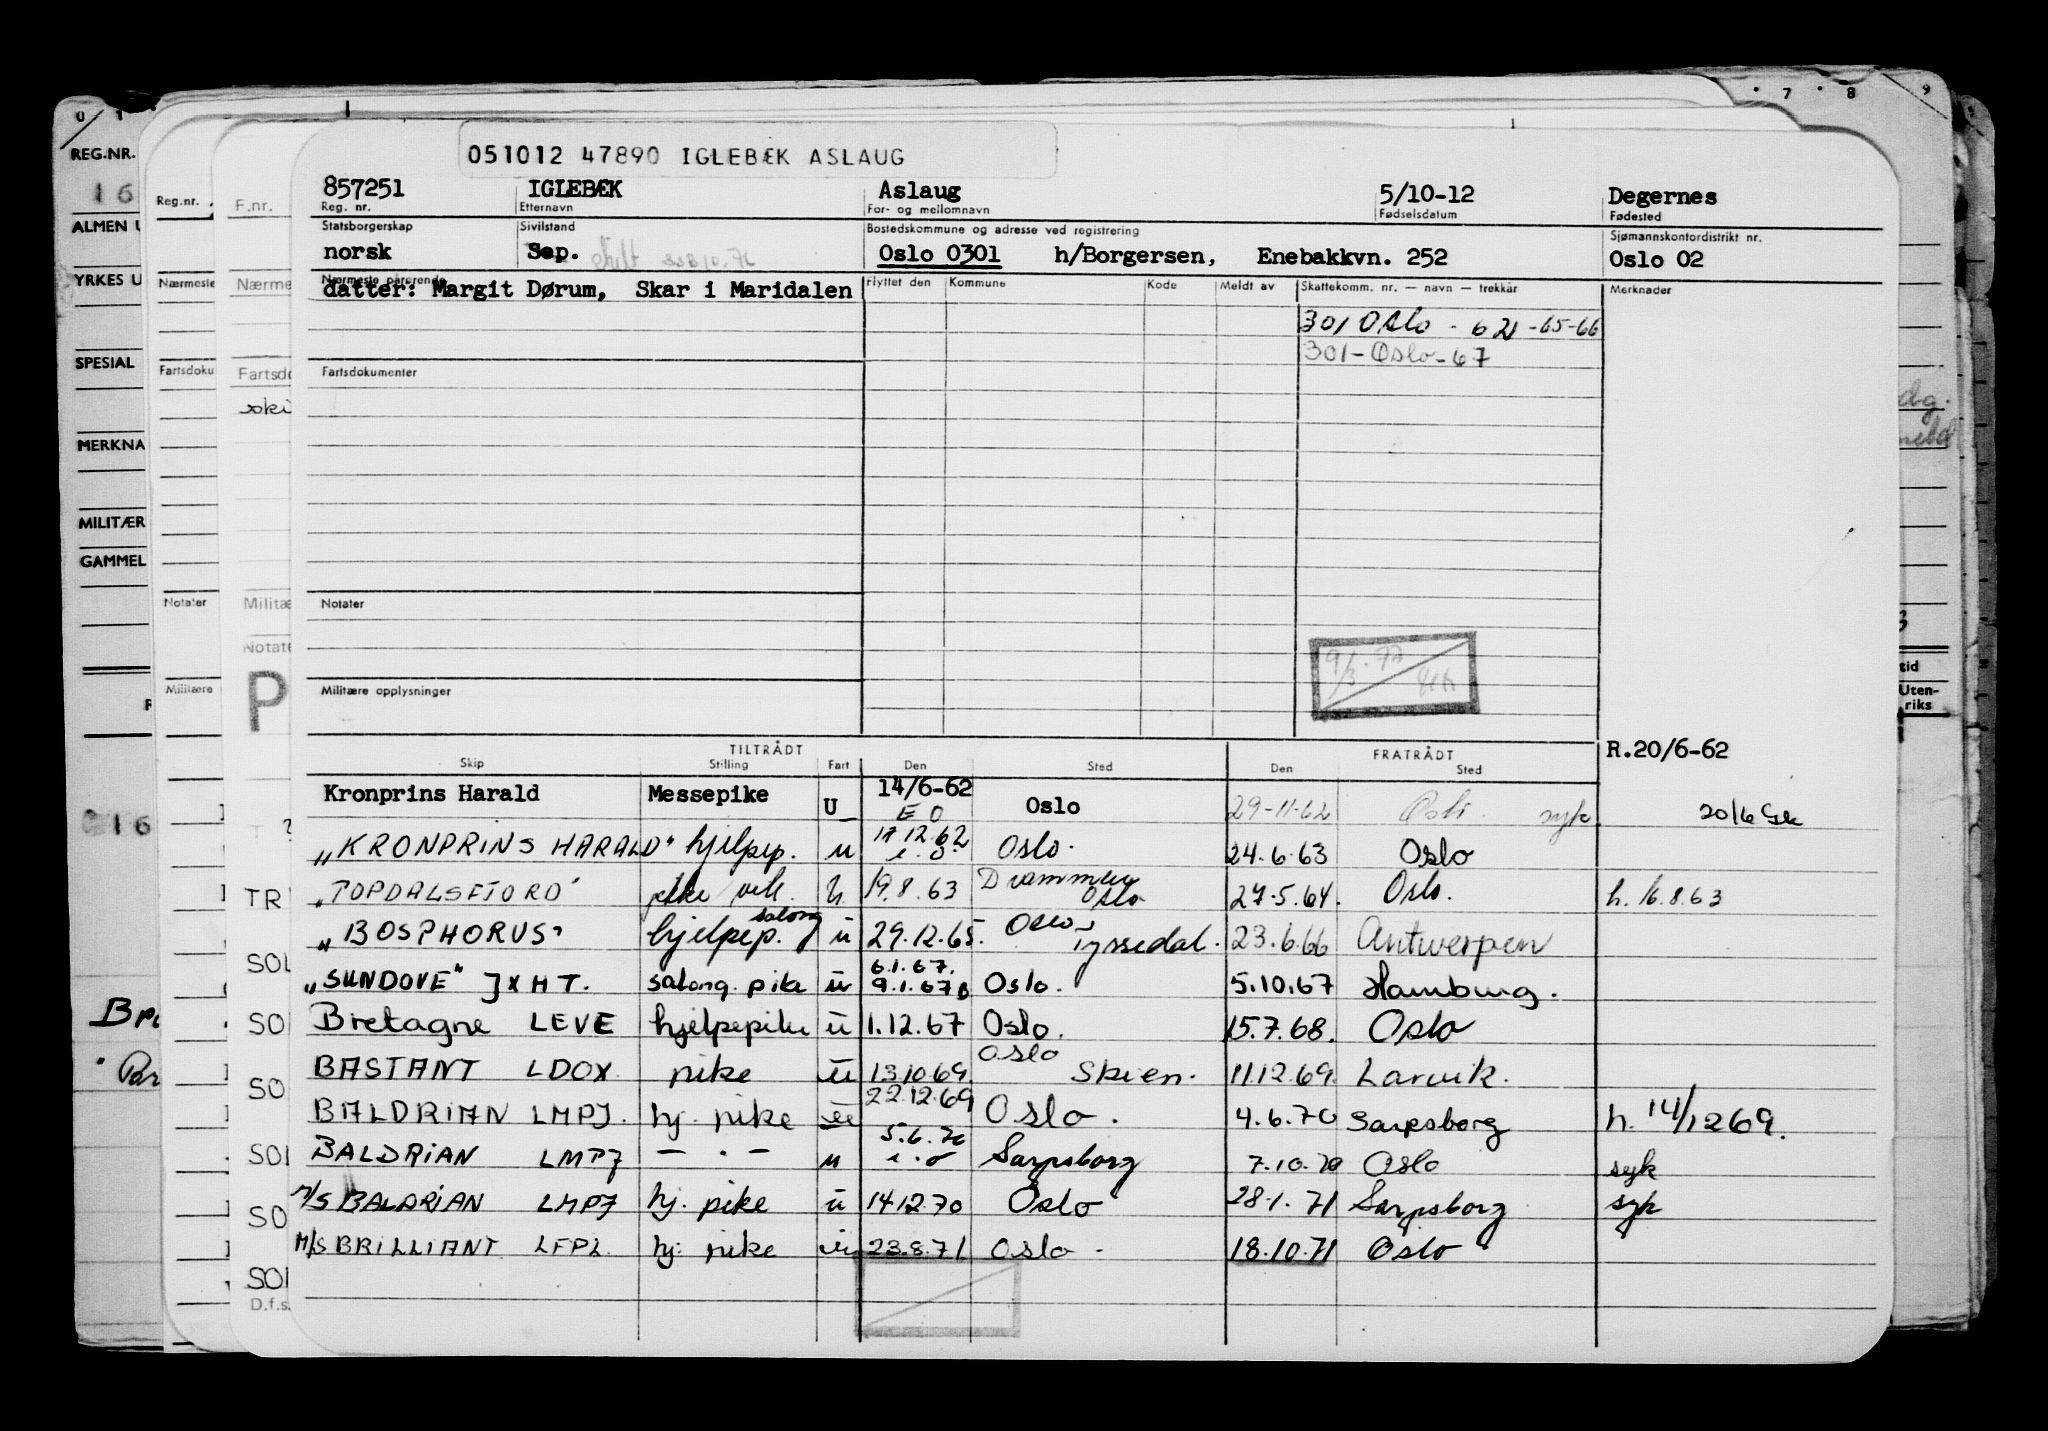 051012 47890 IGLEBÆK ASLAUG
857251 IGLEBÆK Aslaug 5/10-12 Degernes
Reg. nr. Etternavn For- og mellomnavn Fødselsdatum Fødested
Statsborgerskap Sivilstand Bostedskommune og adresse ved registrering Sjømannskontordistrikt nr.
norsk Sep. Oslo 0301 h/Borgersen, Enebakkvn. 252 Oslo 02
Nærmeste pårørende Flyttet den Kommune Kode Meldt av Skattekomm. nr. — navn — trekkår Merknader
datter: Margit Dørum, Skar i Maridalen
301 Oslo - 62 -65-66
301-Oslo-67
Fartsdokumenter
Notater
Militære opplysninger
TILTRÅDT FRATRÅDT R.20/6-62
Skip Stilling Fart Den Sted Den Sted
Kronprins Harald Messepike U 14/6-62 Oslo 29-11-62 Oslo syk 20/6
E O
"KRONPRINS HARALD" hjelpep. u 17.12.62 i.o. Oslo. 24.6.63 Oslo
"TOPDALSFJORD" u. 19.8.63 Drammen Oslo 27.5.64. Oslo. h. 16.8.63
"BOSPHORUS" hjelpep. salong u 29.12.65. Oslo, Tyssedal. 23.6.66 Antwerpen
"SUNDOVE" JXHT. salong. pike u 6.1.67. 9.1.67 Oslo. 5.10.67 Hamburg.
Bretagne LEVE hjelpepike u 1.12.67 Oslo. 15.7.68. Oslo
BASTANT LDOX pike u 13.10.69. Oslo Skien. 11.12.69. Larvik.
BALDRIAN LMPJ. hj. pike u 22.12.69 Oslo. 4.6.70 Sarpsborg h. 14/12 69.
BALDRIAN LMPJ — · — u 5.6.70 i.o Sarpsborg 7.10.70 Oslo syk
M/S BALDRIAN LMPJ hj. pike u 14.12.70 Oslo 28.1.71 Sarpsborg syk
M/S BRILLIANT LFPL hj. pike u 23.8.71 Oslo 18.10.71 Oslo
0 1
7 8 9
REG.NR.
16
ALMEN U
YRKES U
SPESIAL
MERKNA
MILITÆR
GAMMEL
16
Reg.nr.
Nærmeste
Fartsdoku
Notater
Militære
F.nr.
Nærme
Fartsdo
Militæ
Notate
P
TR
SOL
SO
SO
SOI
SO
SOI
D.f.s.
tid
Uten-
riks